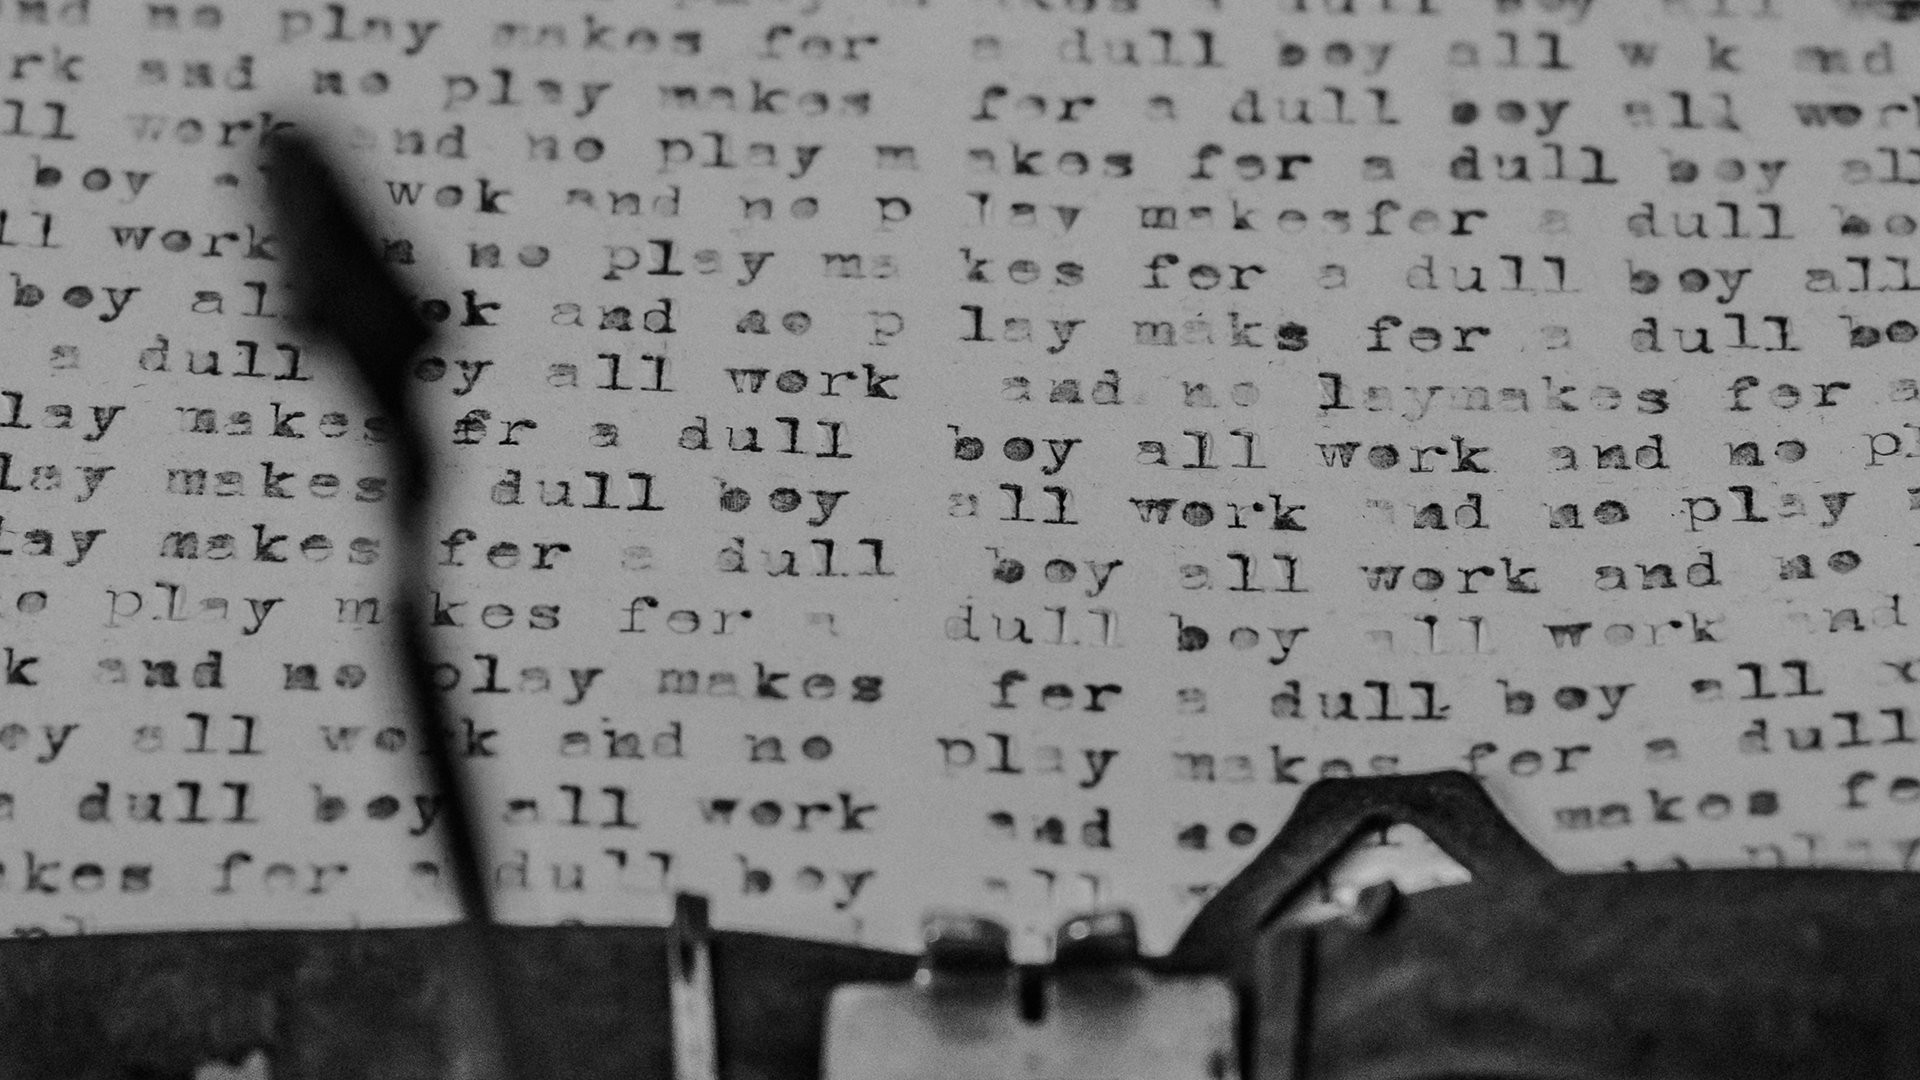 nd no play makes for a dull boy all w k and
rk and no play makes for a dull boy all work
ll work and no play m akes for a dull boy all
boy a wok and no p lay makesfor a dull bo
ll work n no play ma kes for a dull boy all
boy all ok and no p lay maks for a dull bo
a dull oy all work and no laymakes for a
lay makes fr a dull boy all work and no pl
lay makes dull boy all work and no play
lay makes for a dull boy all work and no
o play makes for a dull boy all work and
k and no play makes for a dull boy all
oy all work and no play makes for a dull
a dull boy all work and no makes fo
akes for a dull boy all